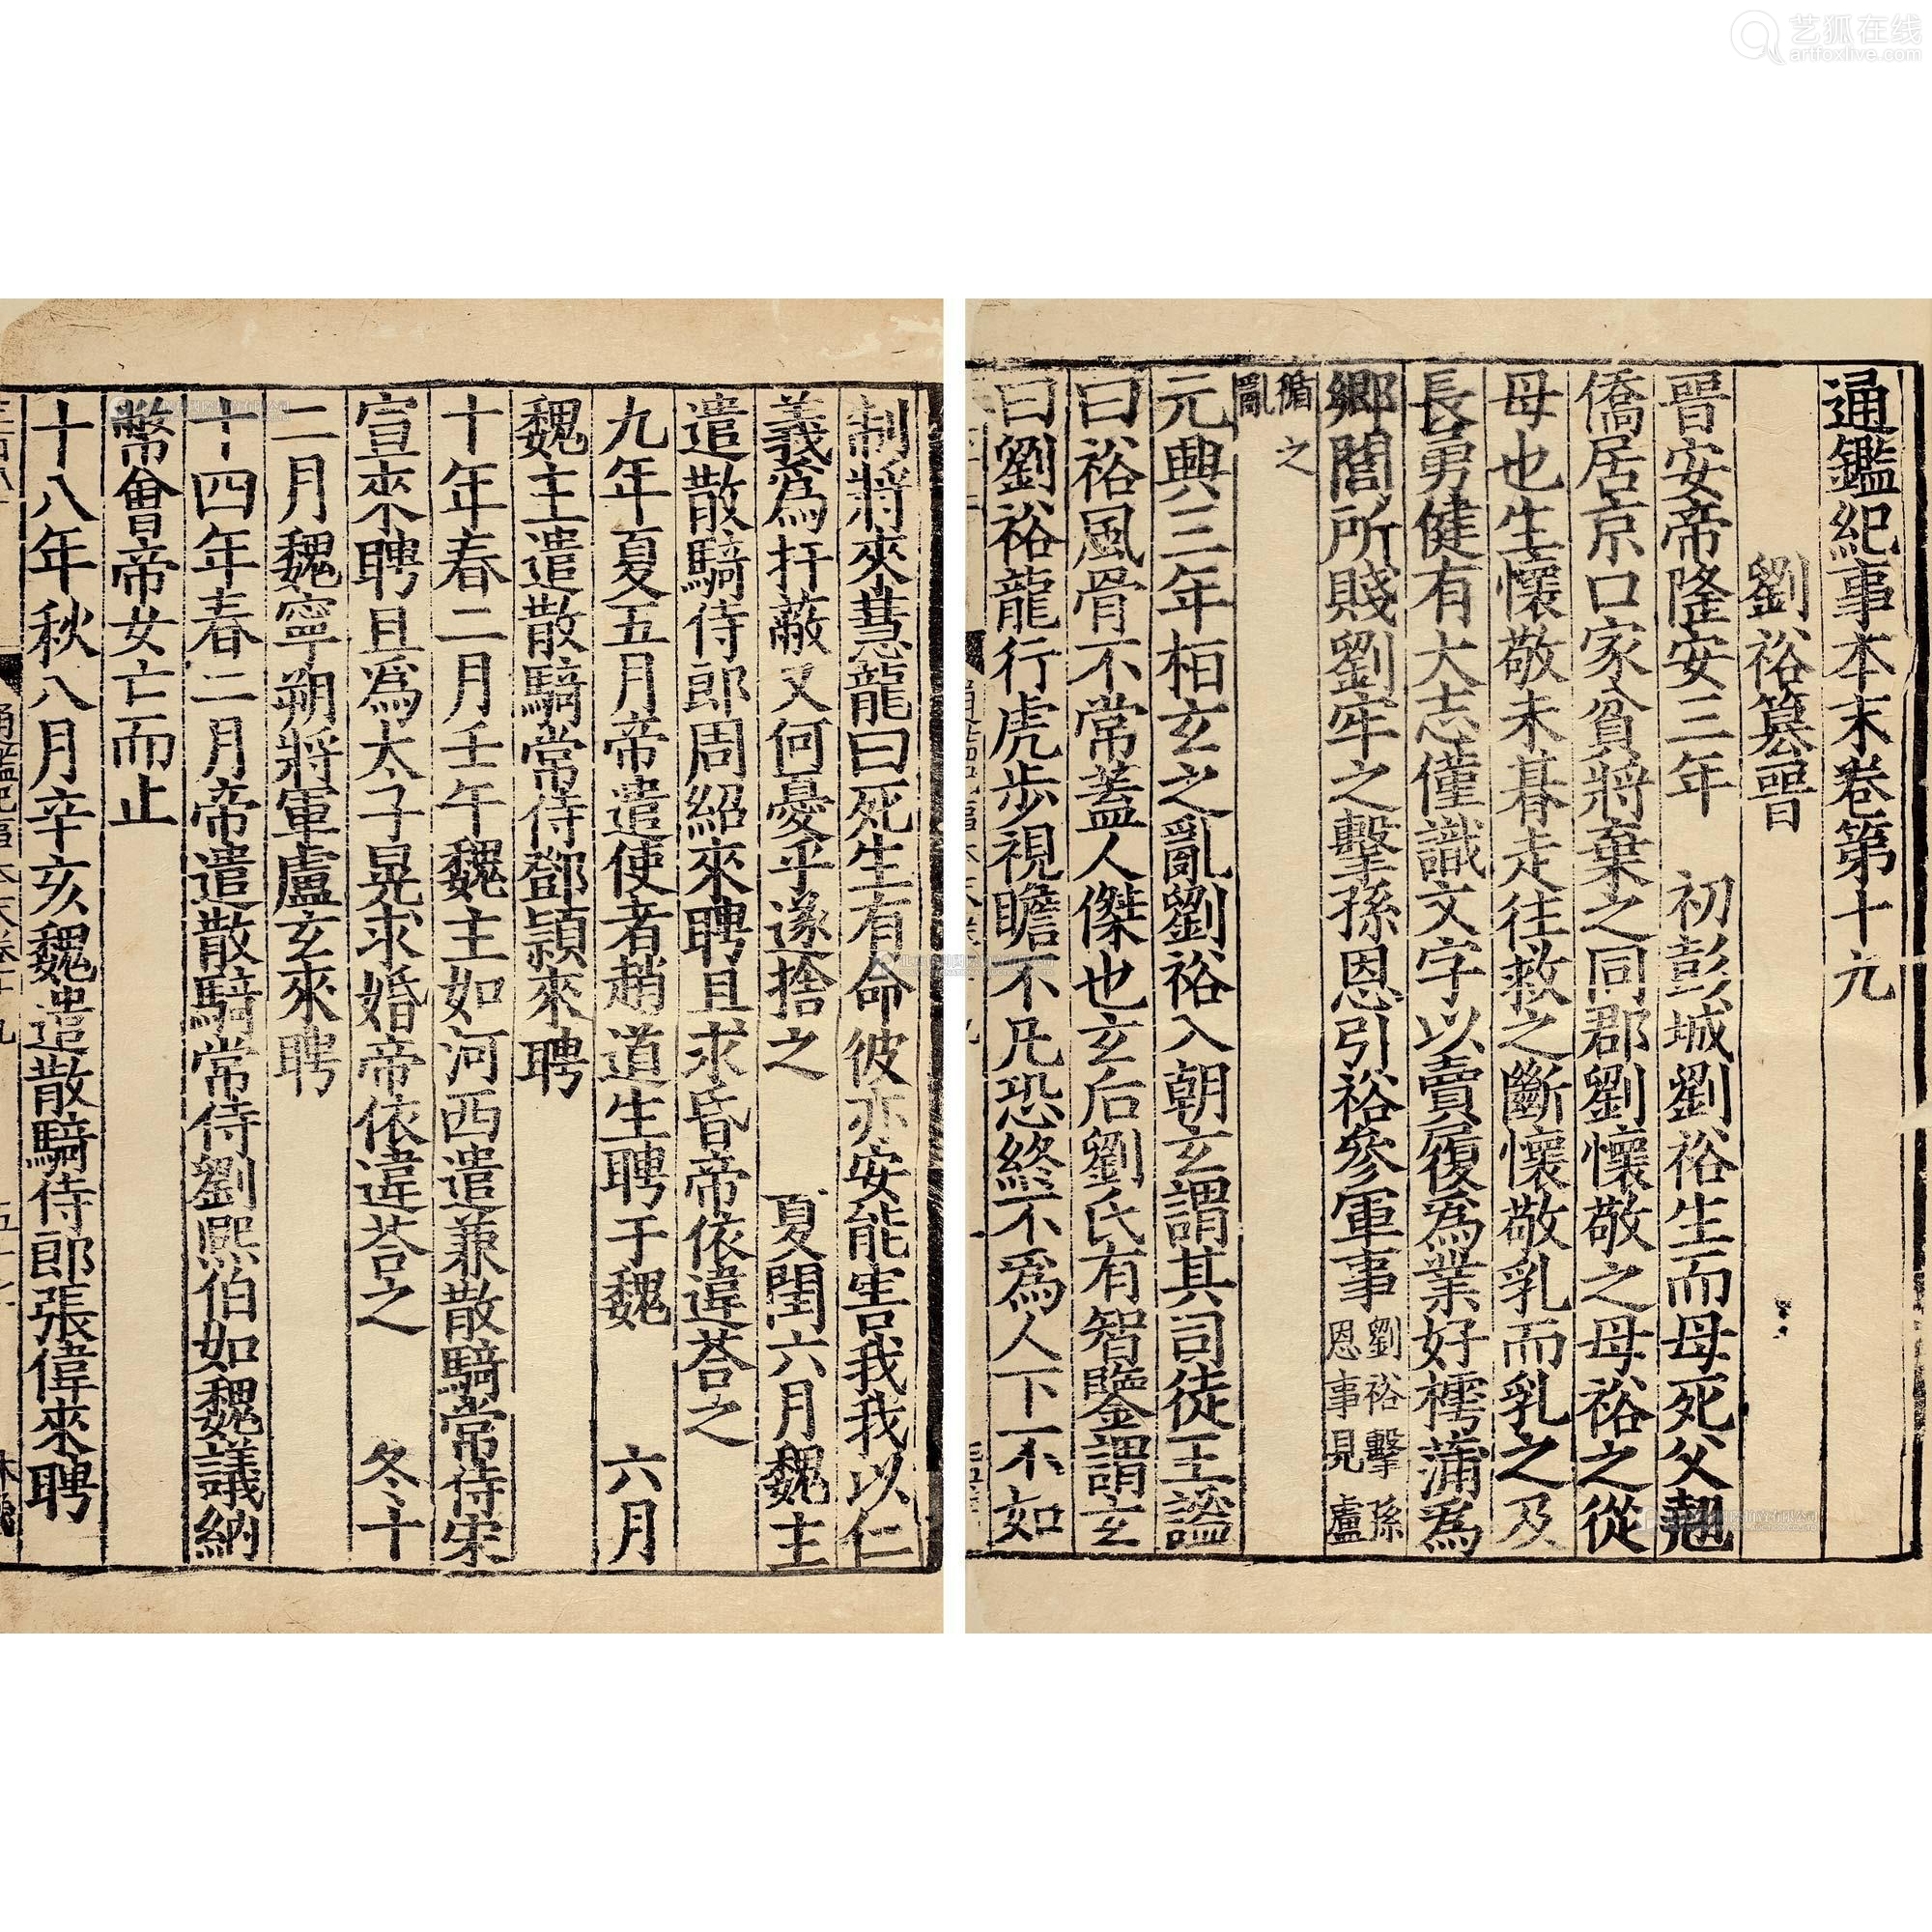 通鑑紀事本末卷第十九
劉裕篡晉
晉安帝隆安三年　初彭城劉裕生而母死父翹
僑居京口家貧將棄之同郡劉懷敬之母裕之從
母也生懷敬未朞走往救之斷懷敬乳而乳之及
長勇健有大志僅識文字以賣履爲業好樗蒲爲
鄉閭所賤劉牢之擊孫恩引裕參軍事劉裕擊孫恩事見盧
循之亂
元興三年桓玄之亂劉裕入朝玄謂其司徒王謐
曰裕風骨不常蓋人傑也玄后劉氏有智鑒謂玄
曰劉裕龍行虎步視瞻不凡恐終不爲人下不如
制將來慧龍曰死生有命彼亦安能害我我以仁
義爲扞蔽又何憂乎遂捨之　夏閏六月魏主
遣散騎侍郎周紹來聘且求昏帝依違荅之
九年夏五月帝遣使者趙道生聘于魏　六月
魏主遣散騎常侍鄧穎來聘
十年春二月壬午魏主如河西遣兼散騎常侍宋
宣來聘且爲太子晃求婚帝依違荅之　冬十
二月魏寧朔將軍盧玄來聘
十四年春二月帝遣散騎常侍劉熙伯如魏議納
幣會帝女亡而止
十八年秋八月辛亥魏遣散騎侍郎張偉來聘
艺狐在线
artfoxlive.com